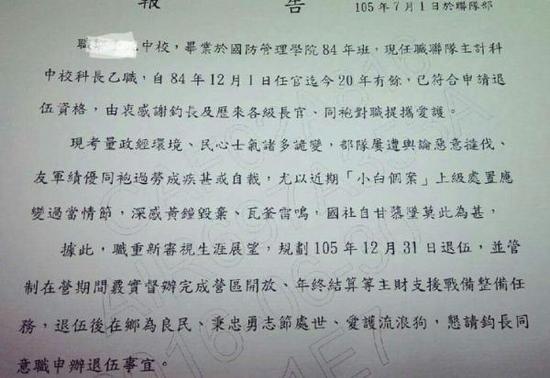 報 告 105年7月1日於聯隊部
職中校，畢業於國防管理學院84年班，現任職聯隊主計科
中校科長乙職，自84年12月1日任官迄今20年有餘，已符合申請退
伍資格，由衷感謝鈞長及歷來各級長官、同袍對職提攜愛護。
現考量政經環境、民心士氣諸多詭變，部隊屢遭輿論惡意撻伐、
友軍績優同袍過勞成疾甚或自裁，尤以近期「小白個案」上級處置應
變過當情節，深感黃鐘毀棄、瓦釜雷鳴，國社自甘墮墜莫此為甚，
據此，職重新審視生涯展望，規劃105年12月31日退伍，並管
制在營期間覈實督辦完成營區開放、年終結算等主財支援戰備整備任
務，退伍後在鄉為良民、秉忠勇志節處世、愛護流浪狗，懇請鈞長同
意職申辦退伍事宜。